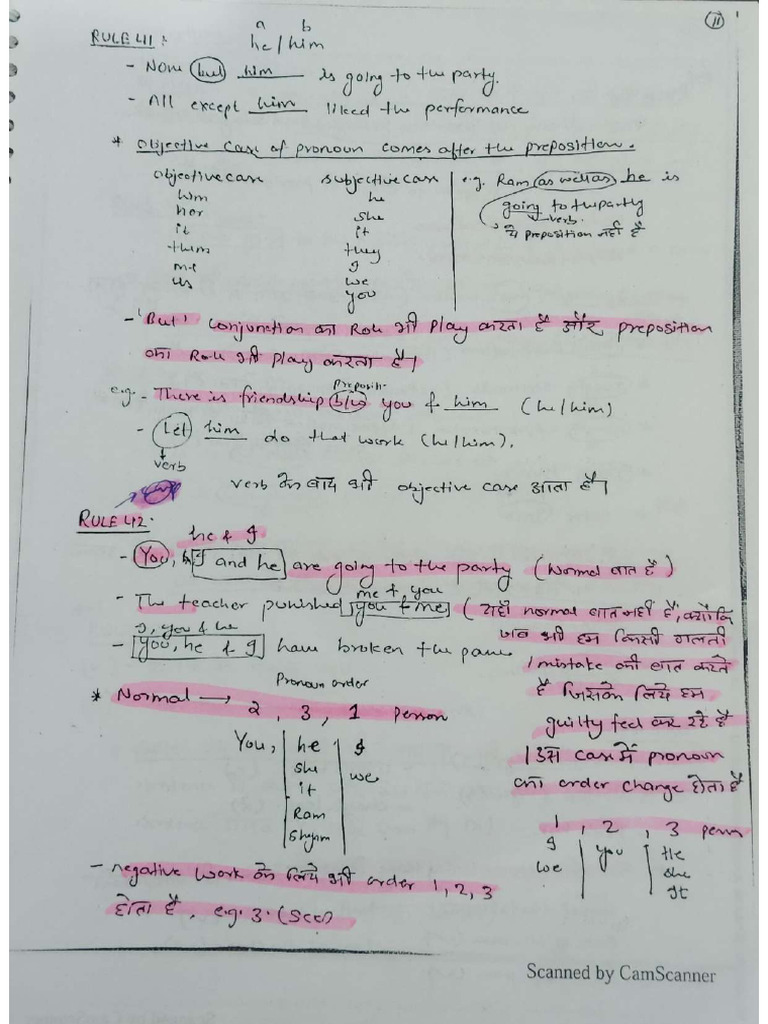 11
a b
RULE 41: he/him
- None but him is going to the party.
- All except him liked the performance
* Objective case of pronoun comes after the preposition.
objective case subjective case e.g. Ram as well as he is
him he going to the party
her she verb.
it it ये preposition नहीं है
them they
me I
us we
you
- 'But' conjunction का Role भी Play करता है और preposition
का Role भी play करता है।
prepositi.
e.g. - There is friendship b/w you & him (he/him)
- Let him do that work (he/him).
verb
verb के बाद भी objective case आता है।
RULE 42:
he & I
- You, I and he are going to the party (Normal बात है)
me & you
- The teacher punished you & me (यहाँ normal बात नहीं है, क्योंकि
I, you & he जब भी हम किसी गलती
- you, he & I have broken the pane / mistake की बात करते
है जिसके लिये हम
Pronoun order
* Normal → 2, 3, 1 person
guilty feel कर रहे है
You, he I
। उस case में pronoun
she we
it
का order change होता है
Ram
Shyam
1, 2, 3 person
I you He
we she
It
- negative work के लिये भी order 1, 2, 3
होता है. e.g. 3. (See)
Scanned by CamScanner